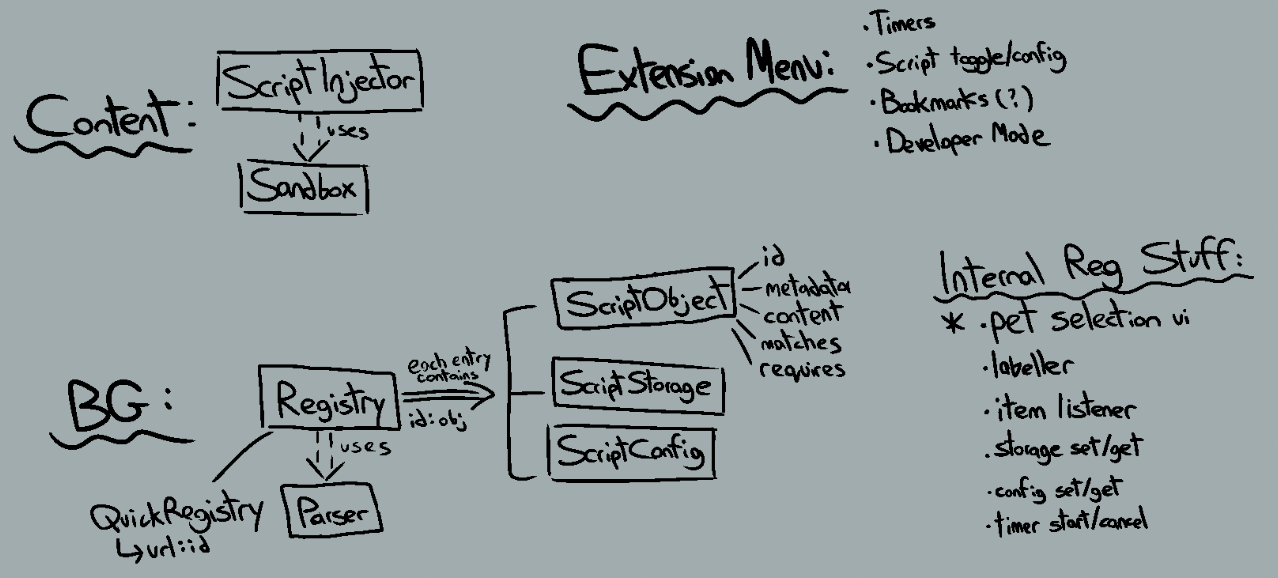 Content:
ScriptInjector
uses
Sandbox
Extension Menu:
· Timers
· Script toggle/config
· Bookmarks (?)
· Developer Mode
BG:
Registry
uses
Parser
QuickRegistry
↳ url:id
each entry
contains
id:obj
ScriptObject
id
metadata
content
matches
requires
ScriptStorage
ScriptConfig
Internal Reg Stuff:
* · pet selection ui
· labeller
· item listener
· storage set/get
· config set/get
· timer start/cancel